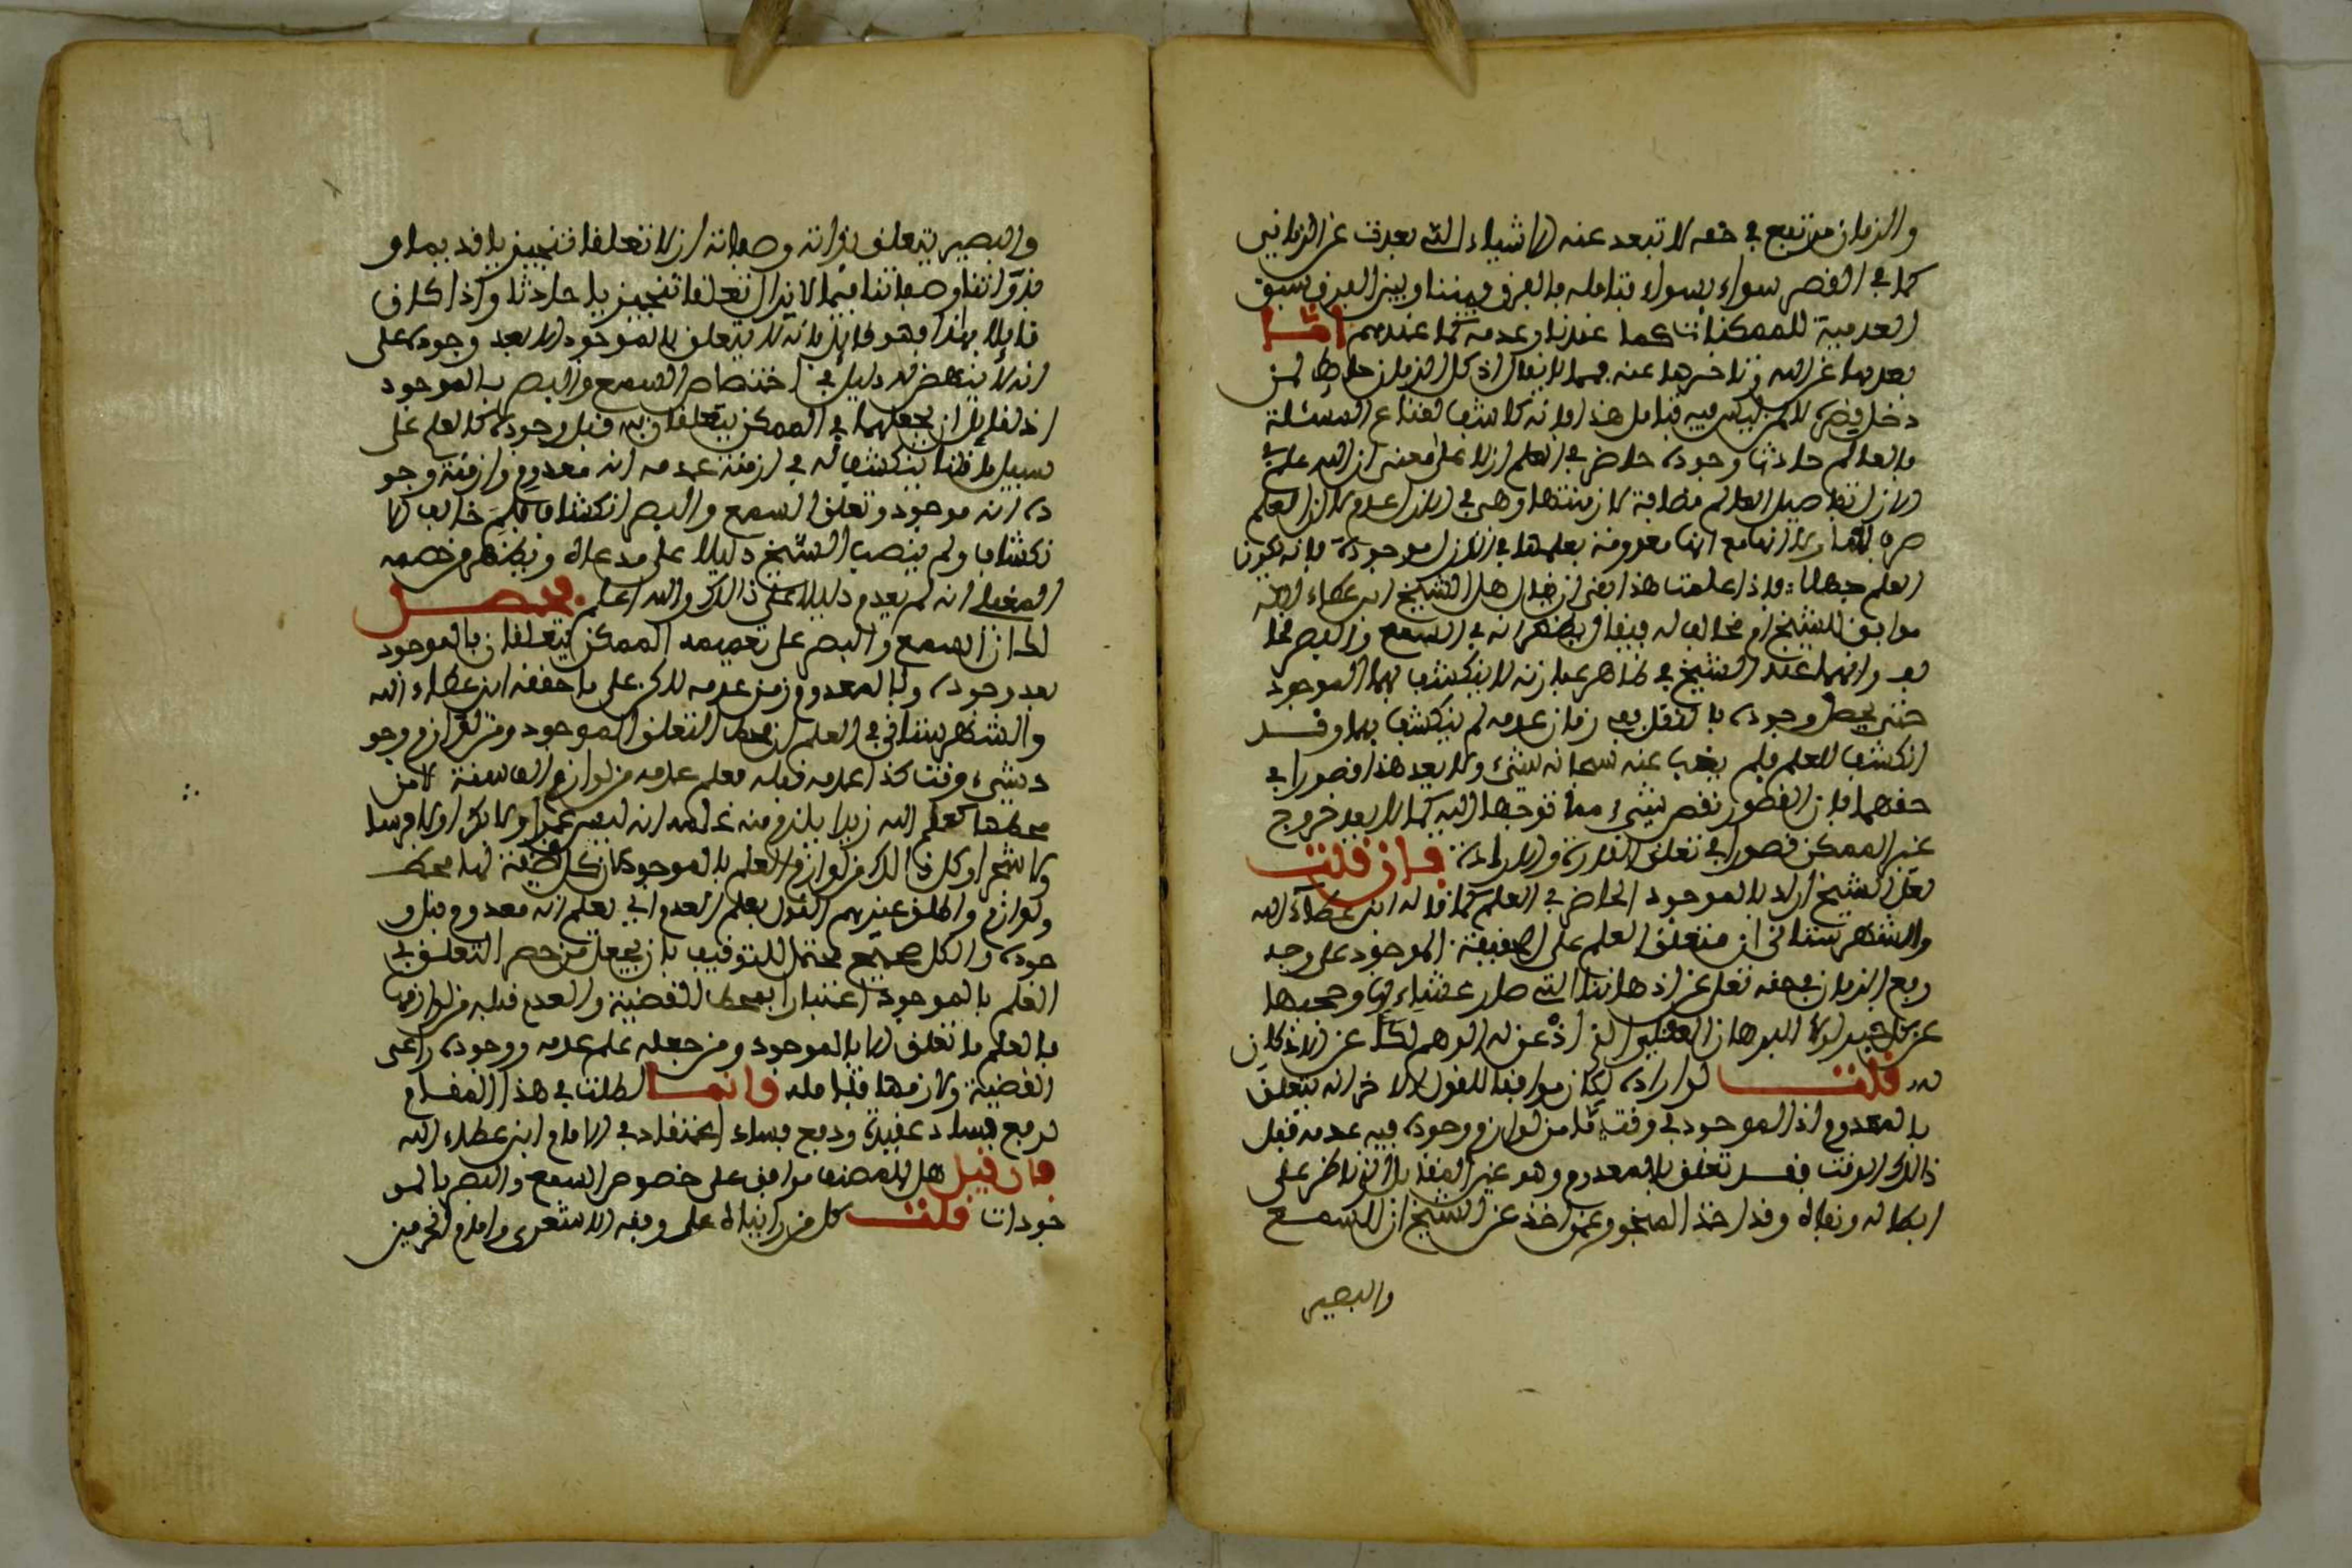 والزمان مرتفع في حقه لا تبعد عنه الاشياء التي بعدت عن الزماني
كما في القصر سواء بسواء فتامله والفرق بيننا وبين الفرق بسبق
العدمية للممكنات كما عندنا وعدمه كما عندهم اما
بعدها عن الله وتاخرها عنه فمما لا يقال اذ كل الزمان حاضر لمن
دخل لا من ليس فيه فتامل هذا فانه كاشف لقناع المسئلة
فالعالم حادث وجوده حاضر في العلم ازلا على معنى ان الله علم في
الازل تفاصيل العالم مضافة لازمنتها وهي في الازل عدم لا ان العلم
لا انها مع انها معدومة يعلمها في الازل موجودة فانه يكون
العلم جهلا فاذا علمت هذا بقي ان يقال هل الشيخ ابن عطاء الله
موافق للشيخ او مخالف له فيقال يظهر انه في السمع والبصر مخا
لف وانهما عند الشيخ في ظاهر عبارته لا ينكشف بهما الموجود
حتى يحصل وجوده بالفعل ففي زمان عدمه لم ينكشف بهما وقد
انكشف للعلم فلم يغب عنه سبحانه شيء ولا يعد هذا قصورا في
حقهما فان القصور نقص شيء مما توجها اليه كما لا يعد خروج
غير الممكن قصورا في تعلق القدرة والارادة فان قلت
لعل الشيخ اراد بالموجود الحاضر في العلم كما قاله ابن عطاء الله
والشهرستاني ان متعلق العلم على الحقيقة الموجود على وجه
رفع الزمان في حقه تعلى عن اذهاننا التي صار عشاء لها وحجبها
عن لولا البرهان العقلي الذي اذعن له الوهم لكلا عن الاذكان
له قلت لو اراده لكان موافقا للقول الاخر انه يتعلق
بالمعدوم اذ الموجود في وقت ما من لوازم وجوده فيه عدمه قبل
ذالك الوقت فقد تعلق بالمعدوم وهو عين المقابل الذي ناضر على
ابطاله ونفاه وقد اخذ المنجور عمن اخذ عن الشيخ ان السمع
والبصير
والبصير يتعلق بذاته وصفاته ازلا تعلقا تنجيزيا قديما و
بذواتنا وصفاتنا فيما لا يزال تعلقا تنجيزيا حادثا واذا كان
قائلا بهذا فهو قائل بانه لا يتعلق بالموجود الا بعد وجوده على
انه لا ينهض له دليل في اختصاص السمع والبصر بالموجود
اذ لقائل ان يجعلهما في الممكن يتعلقان به قبل وجوده كالعلم على
سبيل ما قلنا ينكشف له في ازمنة عدمه انه معدوم وازمنة وجو
ده انه موجود وتعلق السمع والبصر انكشاف فلم خالف الا
نكشاف ولم ينصب الشيخ دليلا على مدعاه ويظهر من خصمه
المغيلي انه لم يعدم دليلا على ذالك والله اعلم فحصل
لك ان السمع والبصر على تعميمه الممكن يتعلقان بالموجود
بعد وجوده وبالمعدوم زمن عدمه لاكن على ما حققه ابن عطاء الله
والشهرستاني في العلم ان محط التعلق الموجود ومن لوازم وجو
د شيء وقت كذا عدمه قبله فعلم عدمه من لوازم الصفة لا من
محطها كعلم الله زيدا يلزم منه علمه انه ليس عمرا ولا بكرا ولا فرسا
ولا شجرا وكل ذالك من لوازم العلم بالموجود لان كل قضية لها محط
ولوازم واطلق غيرهم القول بعلم العدم اي يعلم انه معدوم قبل و
جوده والكل صحيح محتمل للتوفيق بان يجعل من حصر التعلق في
العلم بالموجود اعتبارا بمحط القضية والعدم قبله من لوازمها
فالعلم ما تعلق الا بالموجود ومن جعله علم عدمه ووجوده راعى
القضية ولازمها فتامله وانما اطلت في هذا المقام
لرفع فساد عقيدة ودفع فساد اعتقاد في الامام ابن عطاء الله
فان قيل هل للمصنف موافق على خصوص السمع والبصر بالمو
جودات قلت كل من رايناه على وفقه الاشعري وامام الحرمين